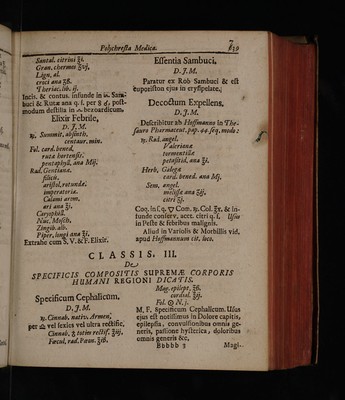 Polychresta Medica.
739
Santal. citrini ℥i.
Gran. chermes ʒij.
Lign. al.
croci ana ʒß.
Theriac. lib. ij.
Incis. & contus. infunde in
buci & Rutæ ana q. s. per 8 d. post-
modum destilla in bezoardicum.
Elixir Febrile,
D. J. M.
℞. Summit. absinth.
centaur. min.
Fol. card. bened.
rutæ hortensis.
pentaphyll. ana Mij.
Rad. Gentianæ.
filicis.
aristol. rotundæ.
imperatoriæ.
Calami arom.
ari ana ℥i.
Caryophill.
Nuc. Mosch.
Zingib. alb.
Piper. longi ana ℥i.
Extrahe cum S. V. & F. Elixir.
Essentia Sambuci.
D. J. M.
Paratur ex Rob Sambuci & est
euporiston ejus in erysipelate.
Decoctum Expellens.
D. J. M.
Describitur ab Hoffmanno in The-
sauro Pharmaceut. pag. 44 seq. modo:
℞. Rad. angel.
Valeriana
tormentillæ
petasitid. ana ℥j.
Herb. Galegæ
card. bened. ana Mj.
Sem. angel.
citri ʒj.
Coq. in s. q. ▽ Com. ℞. Col. & in-
funde conserv. acet. citri q. s. Usus
in Peste & febribus malignis.
Aliud in Variolis & Morbillis vid.
apud Hoffmannum cit. loco.
CLASSIS. III.
De
SPECIFICIS COMPOSITIS SUPREMÆ CORPORIS
HUMANI REGIONI DICATIS.
Specificum Cephalicum.
D. J. M.
℞. Cinnab. nativ. Armen.
per vel sexies vel ultra rectific.
Cinnab. ♁ totim rectif. ℥iij.
Fæcul. rad. Pæon. ℥iß.
Mag. epilept. ℥ß.
cordial. ʒij.
Fol. ☉ N. j.
M. F. Specificum Cephalicum. Usus
ejus est notissimus in Dolore capitis,
epilepsia, convulsionibus omnis ge-
neris, passione hysterica, doloribus
omnis generis &c.
Bbbbb 2
Magi-